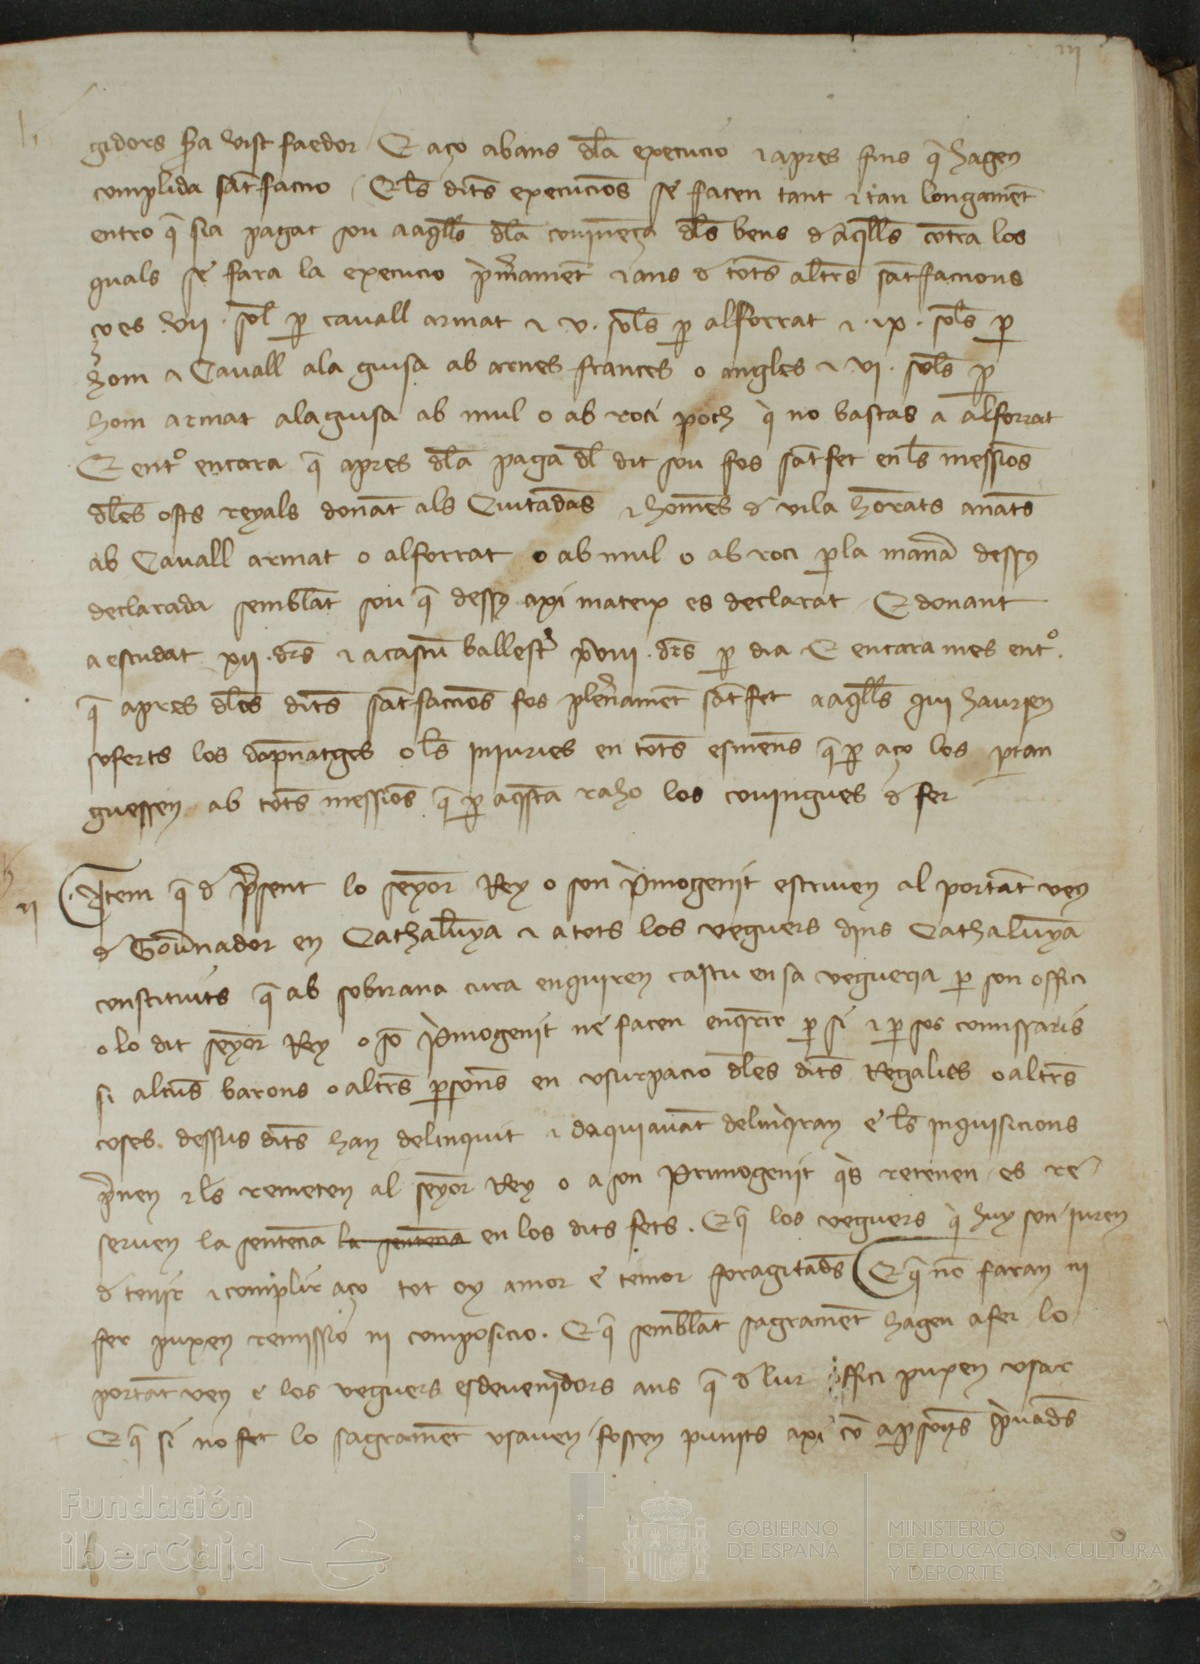 iij
gidors sia vist faedor Et aço abans dla execucio e apres fins q̄ hagen
complida sat̄faccio Els dits execucioñs se facen tant e tan longamēt
entro q̄ sia pagat sou a aq̄lls dla covinēça dls bens d aq̄lls cōtra los
quals se fara la execucio p̃m̃amēt e ans d tots alt̄rs sat̄faccions
ço es vij sol̄ p cavall armat e v. sol̄s p alforrat e .ix. sol̄s p
hom e Cavall ala guisa ab arnes frances o angles e vj. sol̄s p
hom armat alaguisa ab mul o ab roci poch q̃ no bastas a alforrat
Et entº encara q̄ apres dla paga dl dit sou fos sat̄fet en ls messioñs
dles osts reyals donāt als Ciutadās e homēs d vila honrats anāts
ab Cavall armat o alforrat o ab mul o ab roci p la manã dessus
declarada semblāt sou q̄ dessus axi mateix es declarat Et donant
a escudat xij drs e a cascū ballest̃ p viii drs p dia Et encara mes entº
q̄ apres dles dits sat̄faccioñs fos plēnamēt sat̄fet a aq̄lls qui haurien
soferts los dapn̄atges o ls injuries en tots esmēns q̄ p aço los ptan
guessen ab tots messioñs q̄ p aq̄sta raho los covingues d fer
ij
Item q̄ d p̃sent lo seyor Rey o son p̃mogenit escriven al portāt veu
d Gov̄nador en Cathaluya e a tots los veguers dins Cathaluya
constituits q̄ ab sobirana cura enquiren cascu en sa vegueria p son offici
o lo dit seyor Rey o sō p̃mogenit ne facen enq̄rir p si e p sos comissaris
si alcūs barons o alt̄rs psoñs en usurpacio dles dits Regalies o alt̄rs
coses dessus dits han delinquit e daquiavāt delinq̃ran e ls inquisicions
p̃nen e ls remeten al seyor Rey o a son Primogenit q̃s retenen es re
serven la sentēcia la sentēcia en los dits fets. Et q̄ los veguers q̃ huy son juren
d tenir e complir aço tot oy amor e temor foragitads Et q̄ no faran ni
fer puxen remissio ni composicio. Et q̄ semblāt sagramēt hagen a fer lo
portāt veu e los veguers esdevenidors ans q̄ d lur offici puxen usar
Et q̄ si no fet lo sagramēt usaven fossen punits axi cō a psoñs p̃vads
Fundación
iberCaja
GOBIERNO
DE ESPAÑA
MINISTERIO
DE EDUCACIÓN, CULTURA
Y DEPORTE